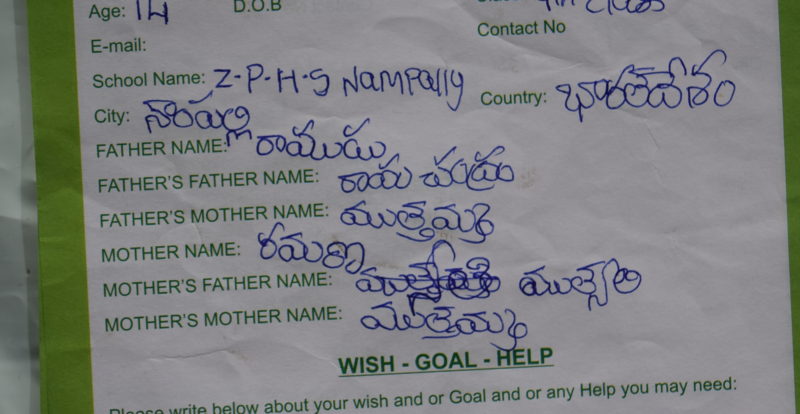 Age: 14 D.O.B
E-mail: Contact No
School Name: Z-P-H-S Nampally
City: నాంపల్లి Country: భారత్‌దేశం
FATHER NAME: రాముడు
FATHER'S FATHER NAME: రామ చంద్రం
FATHER'S MOTHER NAME: ముత్తమ్మ
MOTHER NAME: రమణ
MOTHER'S FATHER NAME:
MOTHER'S MOTHER NAME: ముత్తెమ్మ
WISH - GOAL - HELP
Please write below about your wish and or Goal and or any Help you may need: